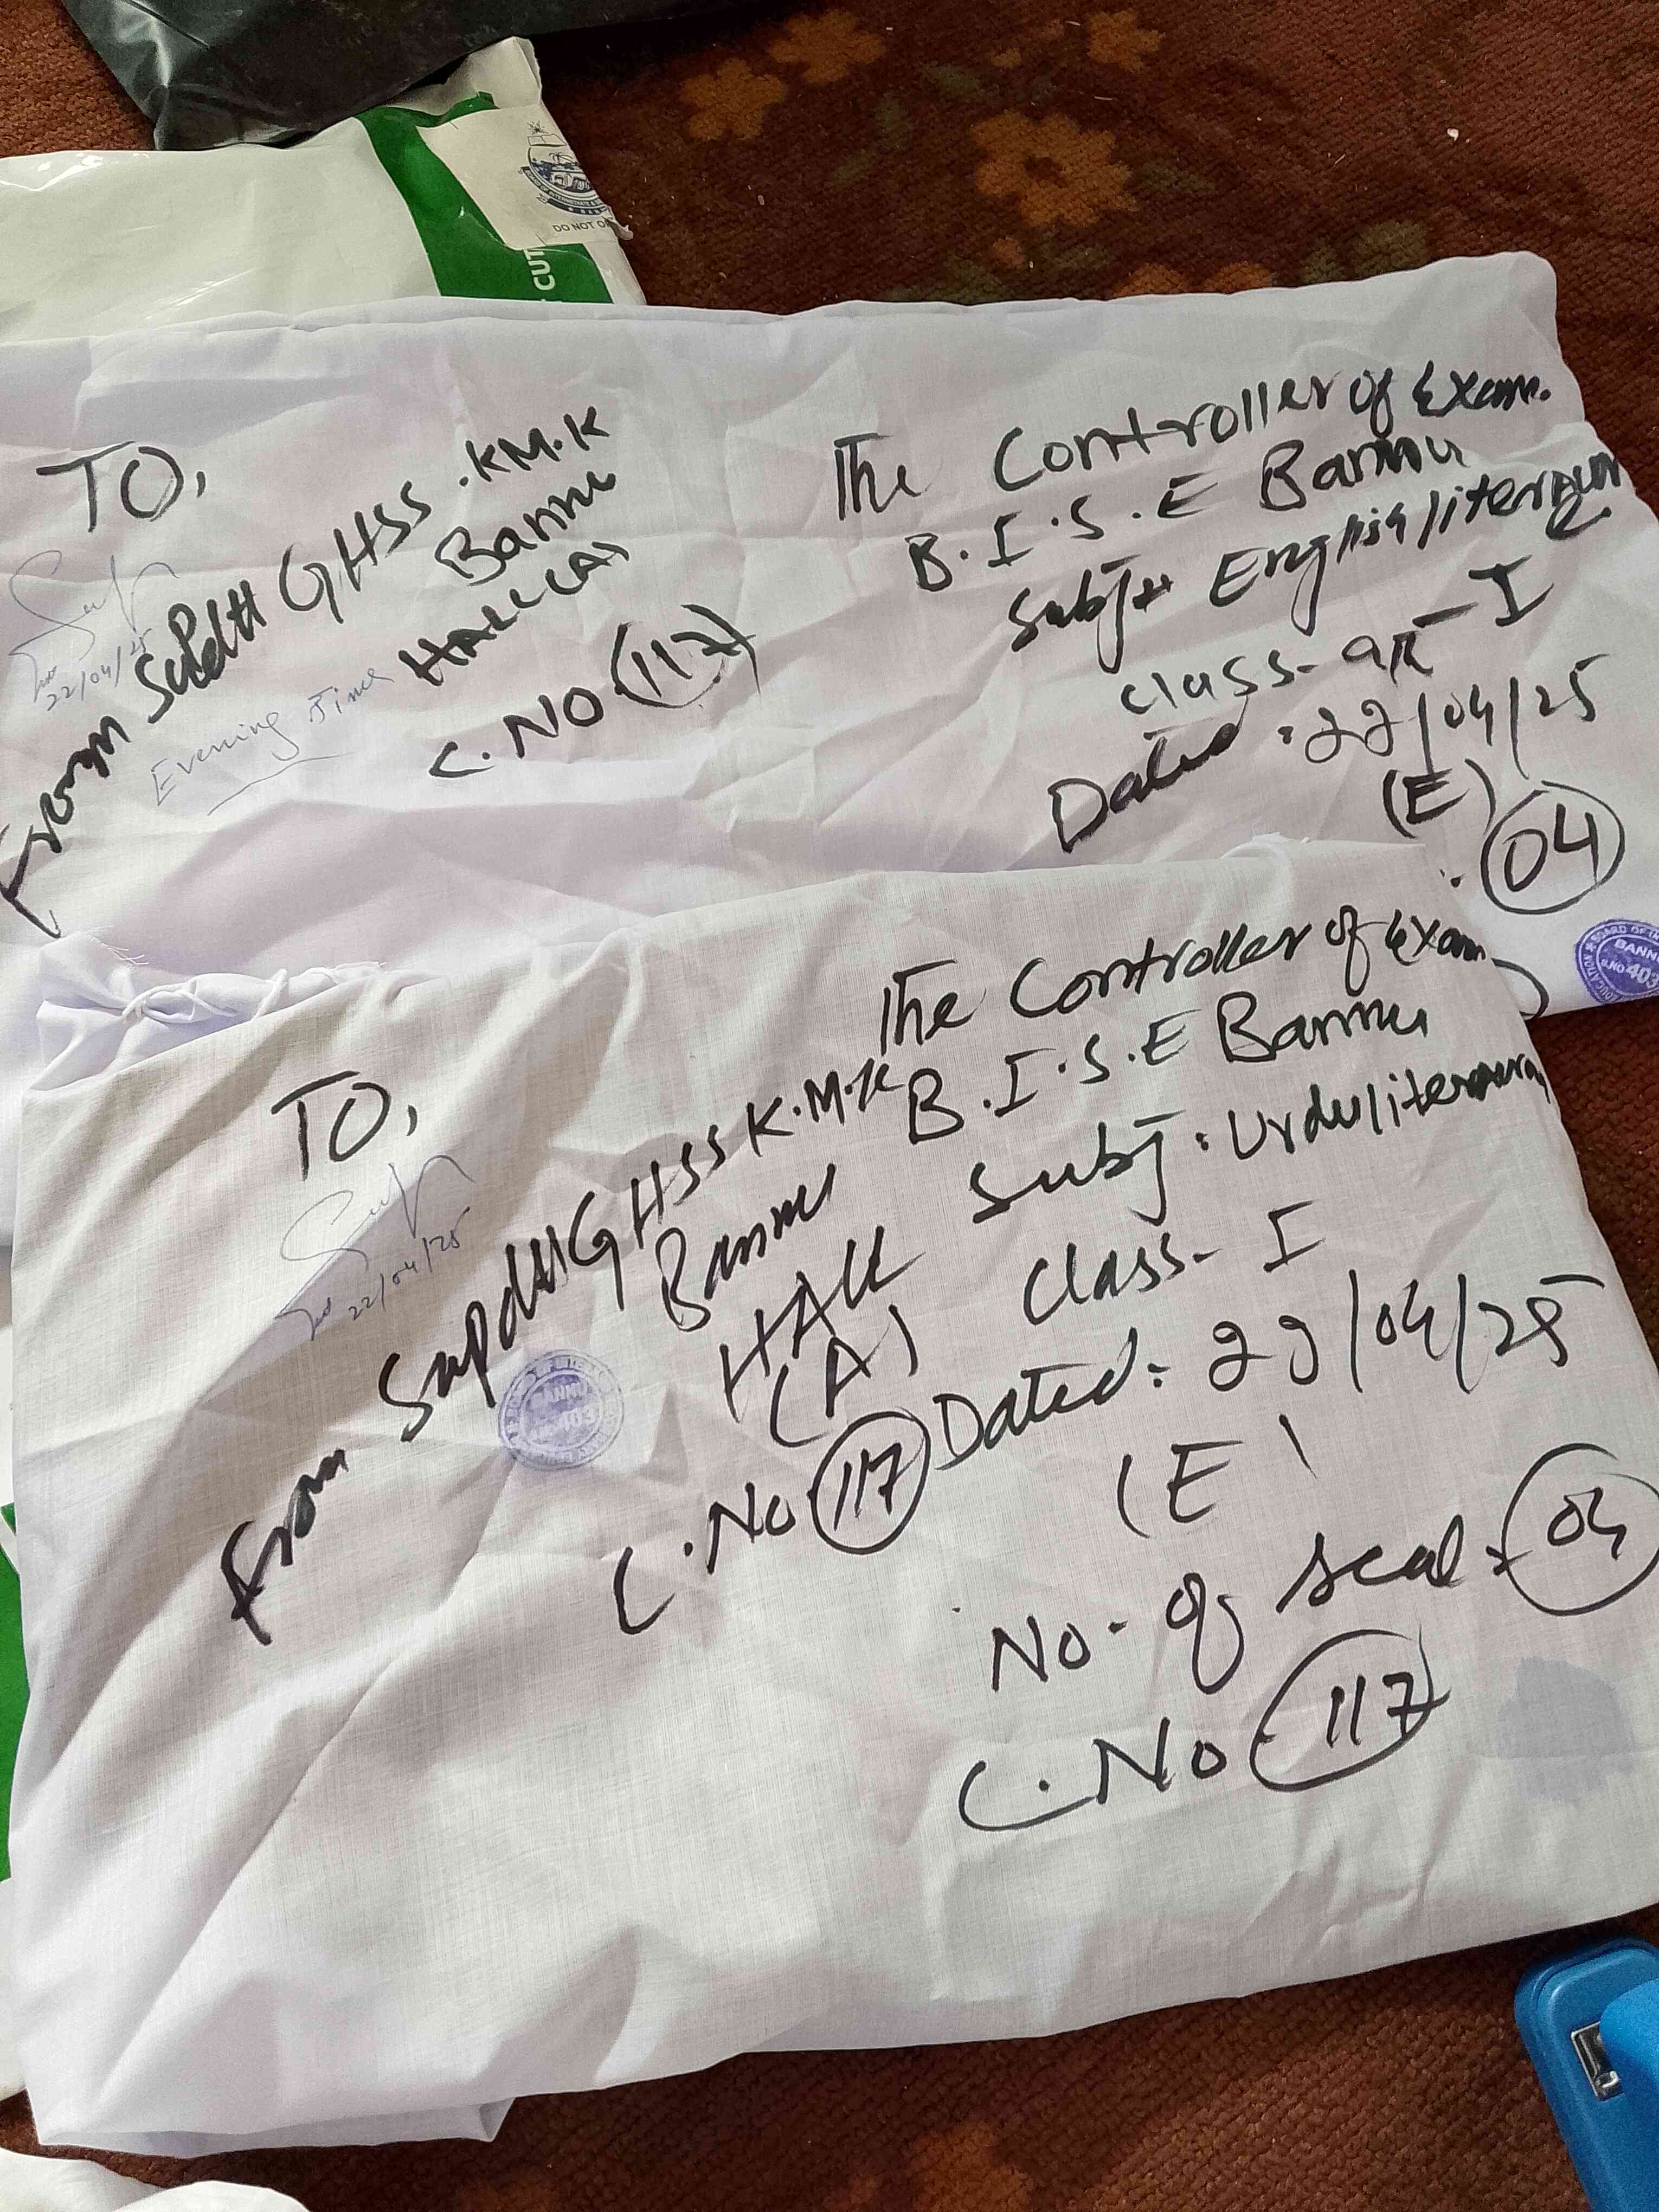 DO NOT
CUT
TO,
The Controller of Exam.
B.I.S.E Bannu
Subj:
English literature
Class- 9th - I
Dated: 22/04/25
(E)
04
From Supdtt GHSS .KM.K
Bannu
HALL (A)
C.NO (117)
22/04/25
Evening Time
BANNU
S.NO 403
TO,
The Controller of Exam
B.I.S.E Bannu
Subj: Urdu literature
Class- I
Dated: 22/04/25
(E)
No. of seal:
04
C.No 117
From Supdtt GHSS K.M.K
Bannu
HALL
(A)
C.No 117
22/04/25
BANNU
403